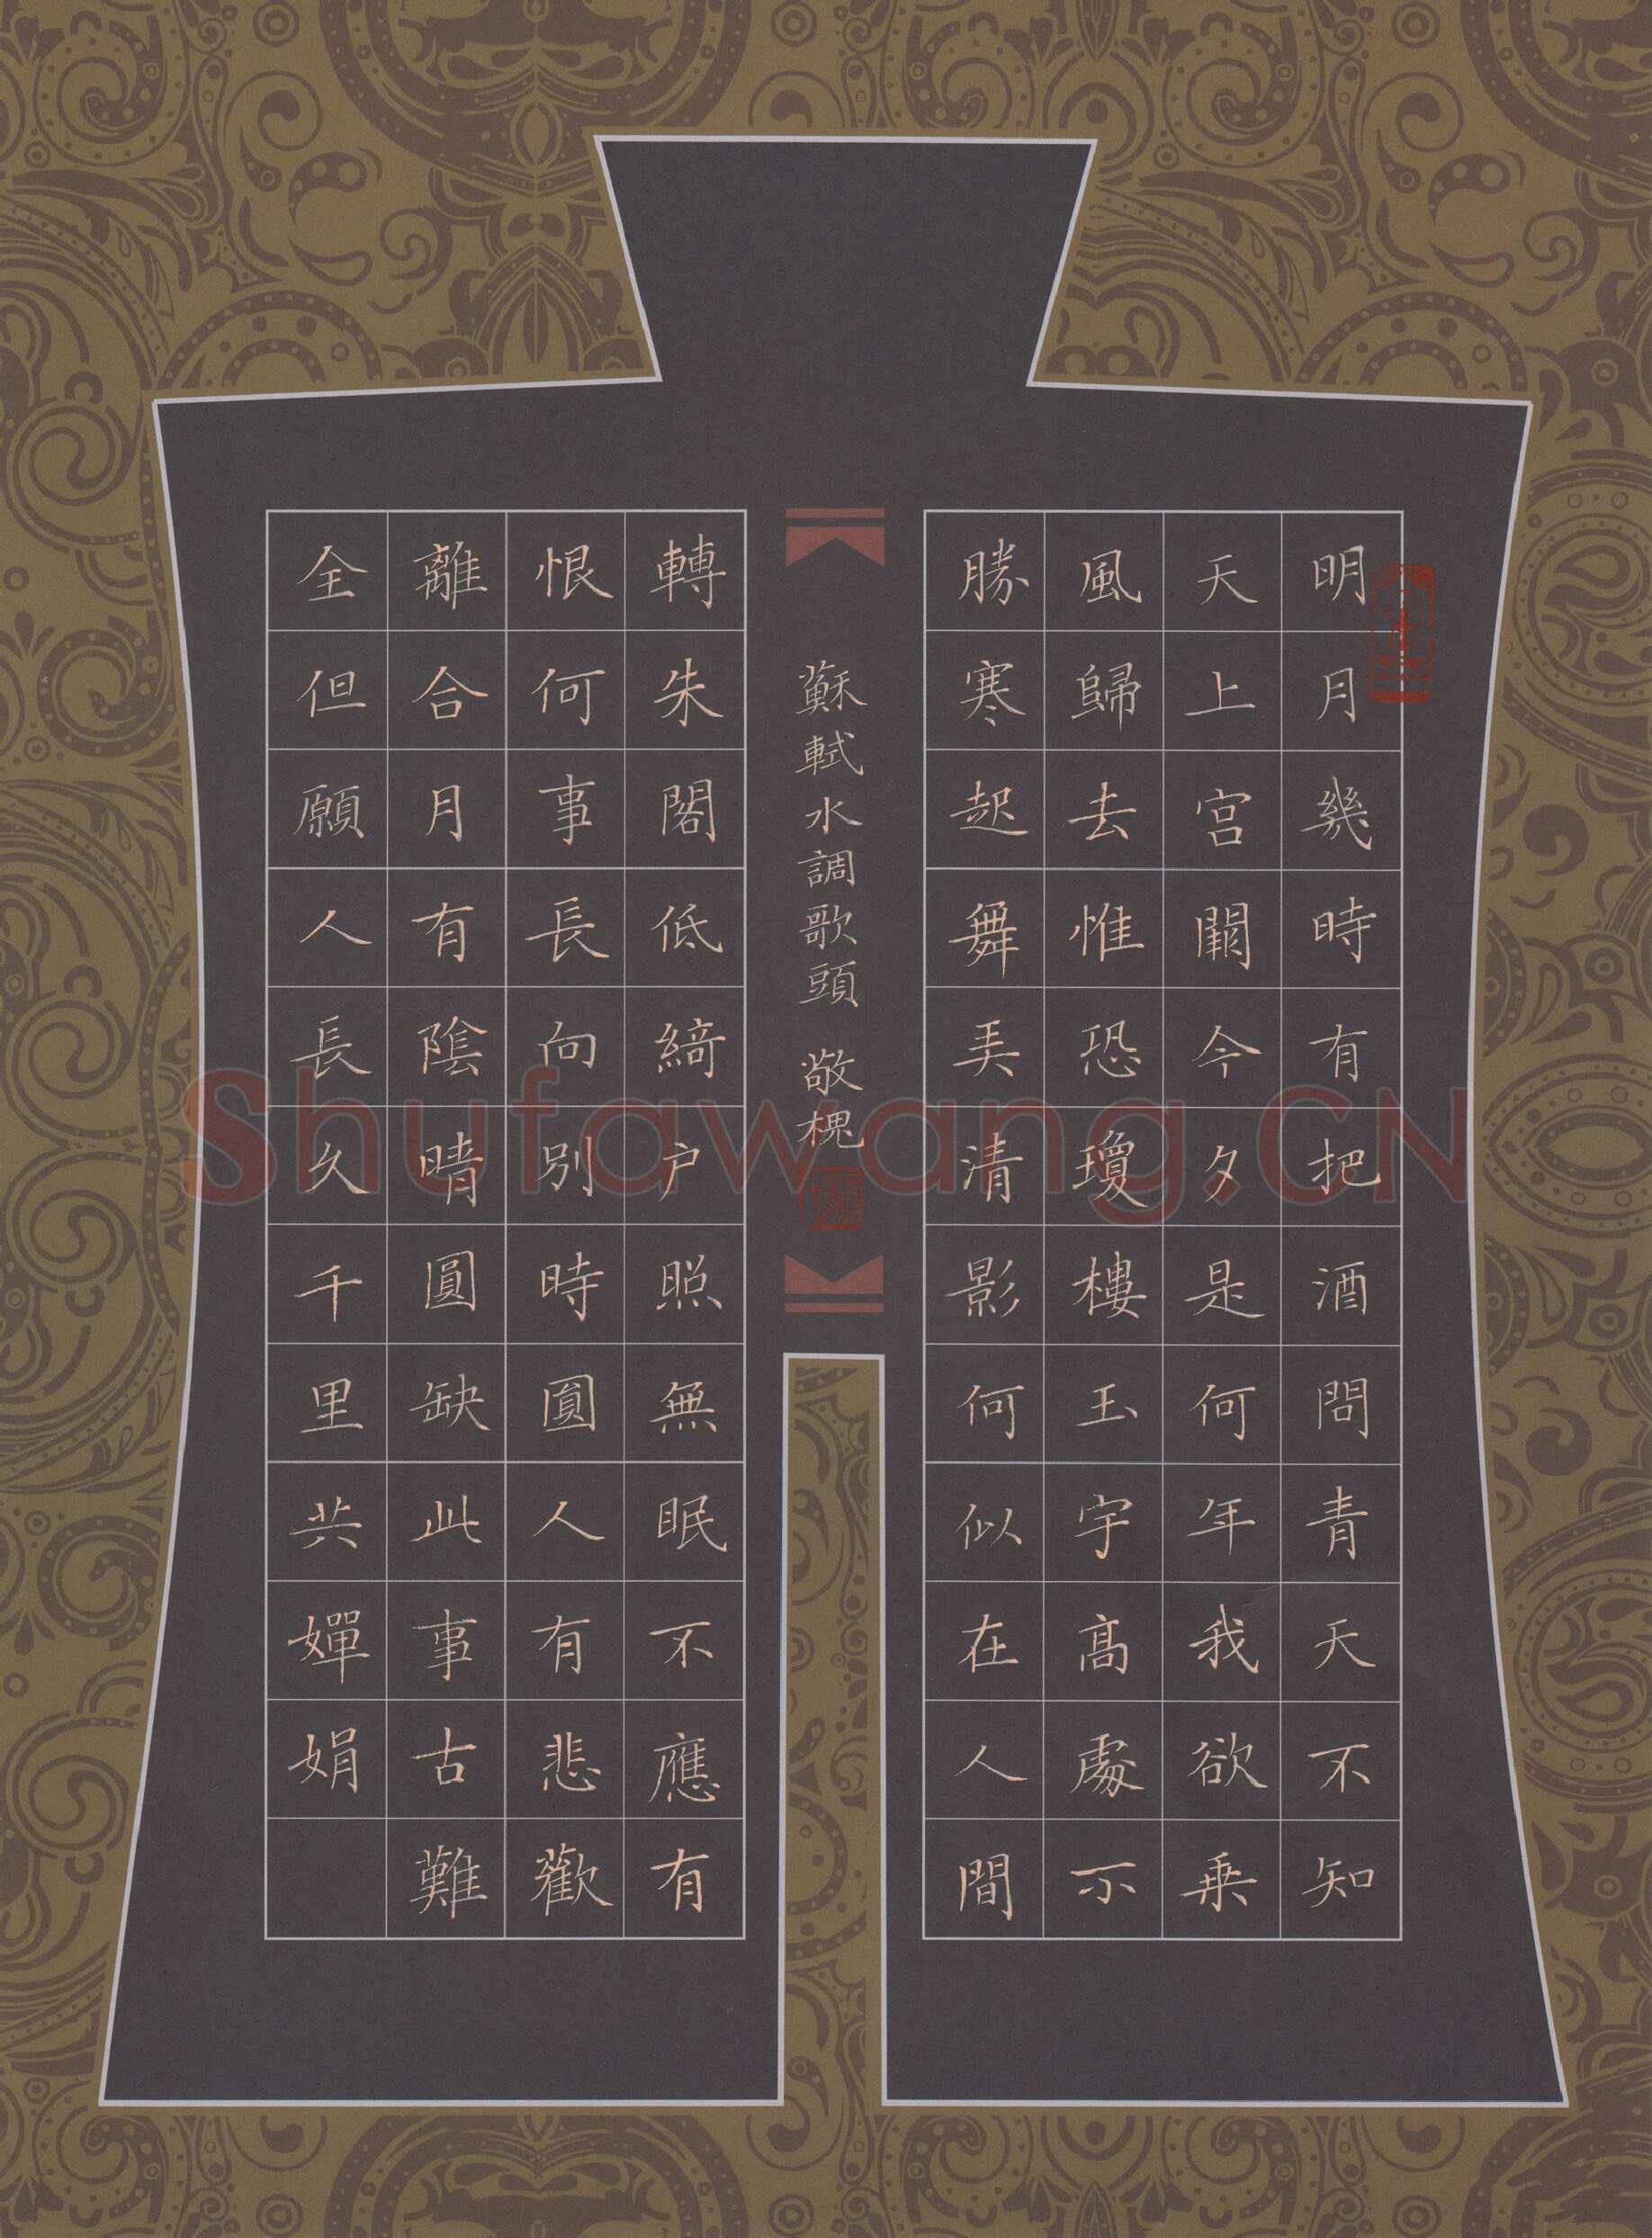 明月幾時有把酒問青天不知
天上宮闕今夕是何年我欲乗
風歸去惟恐瓊樓玉宇髙處不
勝寒起舞弄清影何似在人間
蘇軾水調歌頭 敬槐
轉朱閣低綺户照無眠不應有
恨何事長向別時圓人有悲歡
離合月有陰晴圓缺此事古難
全但願人長久千里共嬋娟
Shufawang.CN